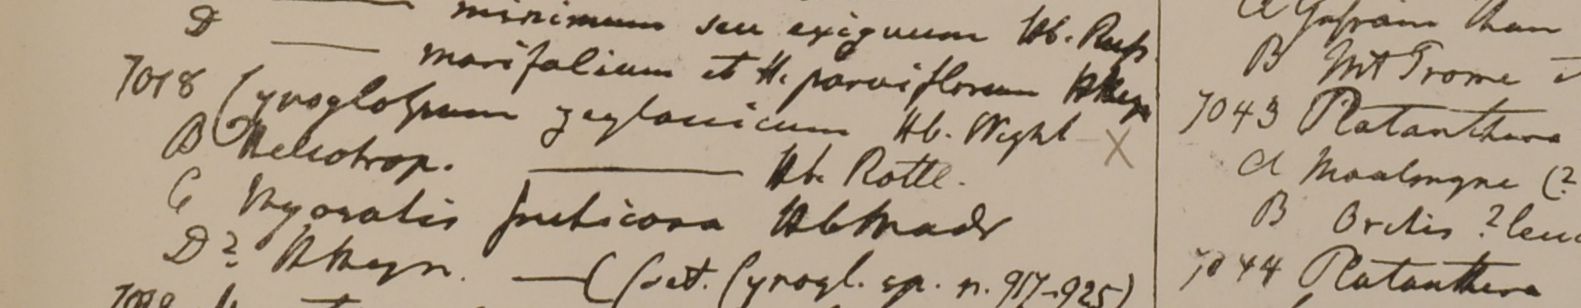 D —— minimum seu exiguum Hb. Russ.
—— marifolium et H. parviflorum H Heyn
7018 Cynoglossum zeylanicum Hb. Wight X
B Heliotrop. —— Hb. Rottl.
C Myosotis fruticosa Hb Madr
D? H Heyn. — ( Cat. Cynogl. sp. n. 917-925)
B Mt Prome
7043 Platanthera
a Moalmyne (?
B Orchis ?
7044 Platanthera